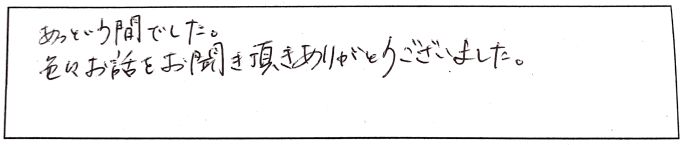 あっという間でした。
色々お話をお聞き頂きありがとうございました。